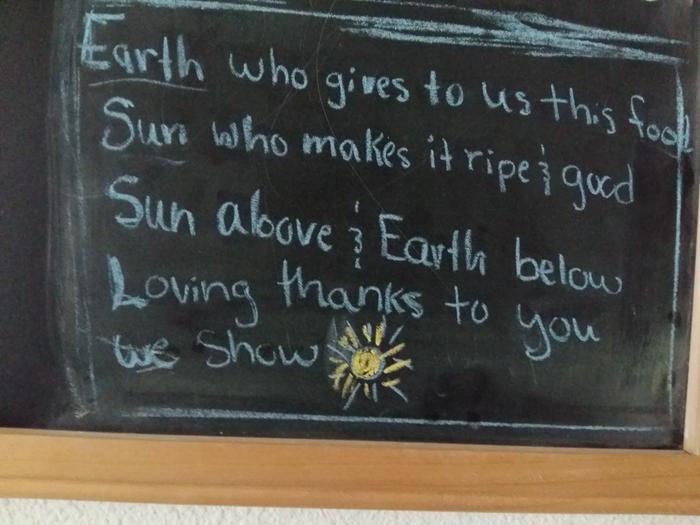 Earth who gives to us this food
Sun who makes it ripe & good
Sun above & Earth below
Loving thanks to you
we show